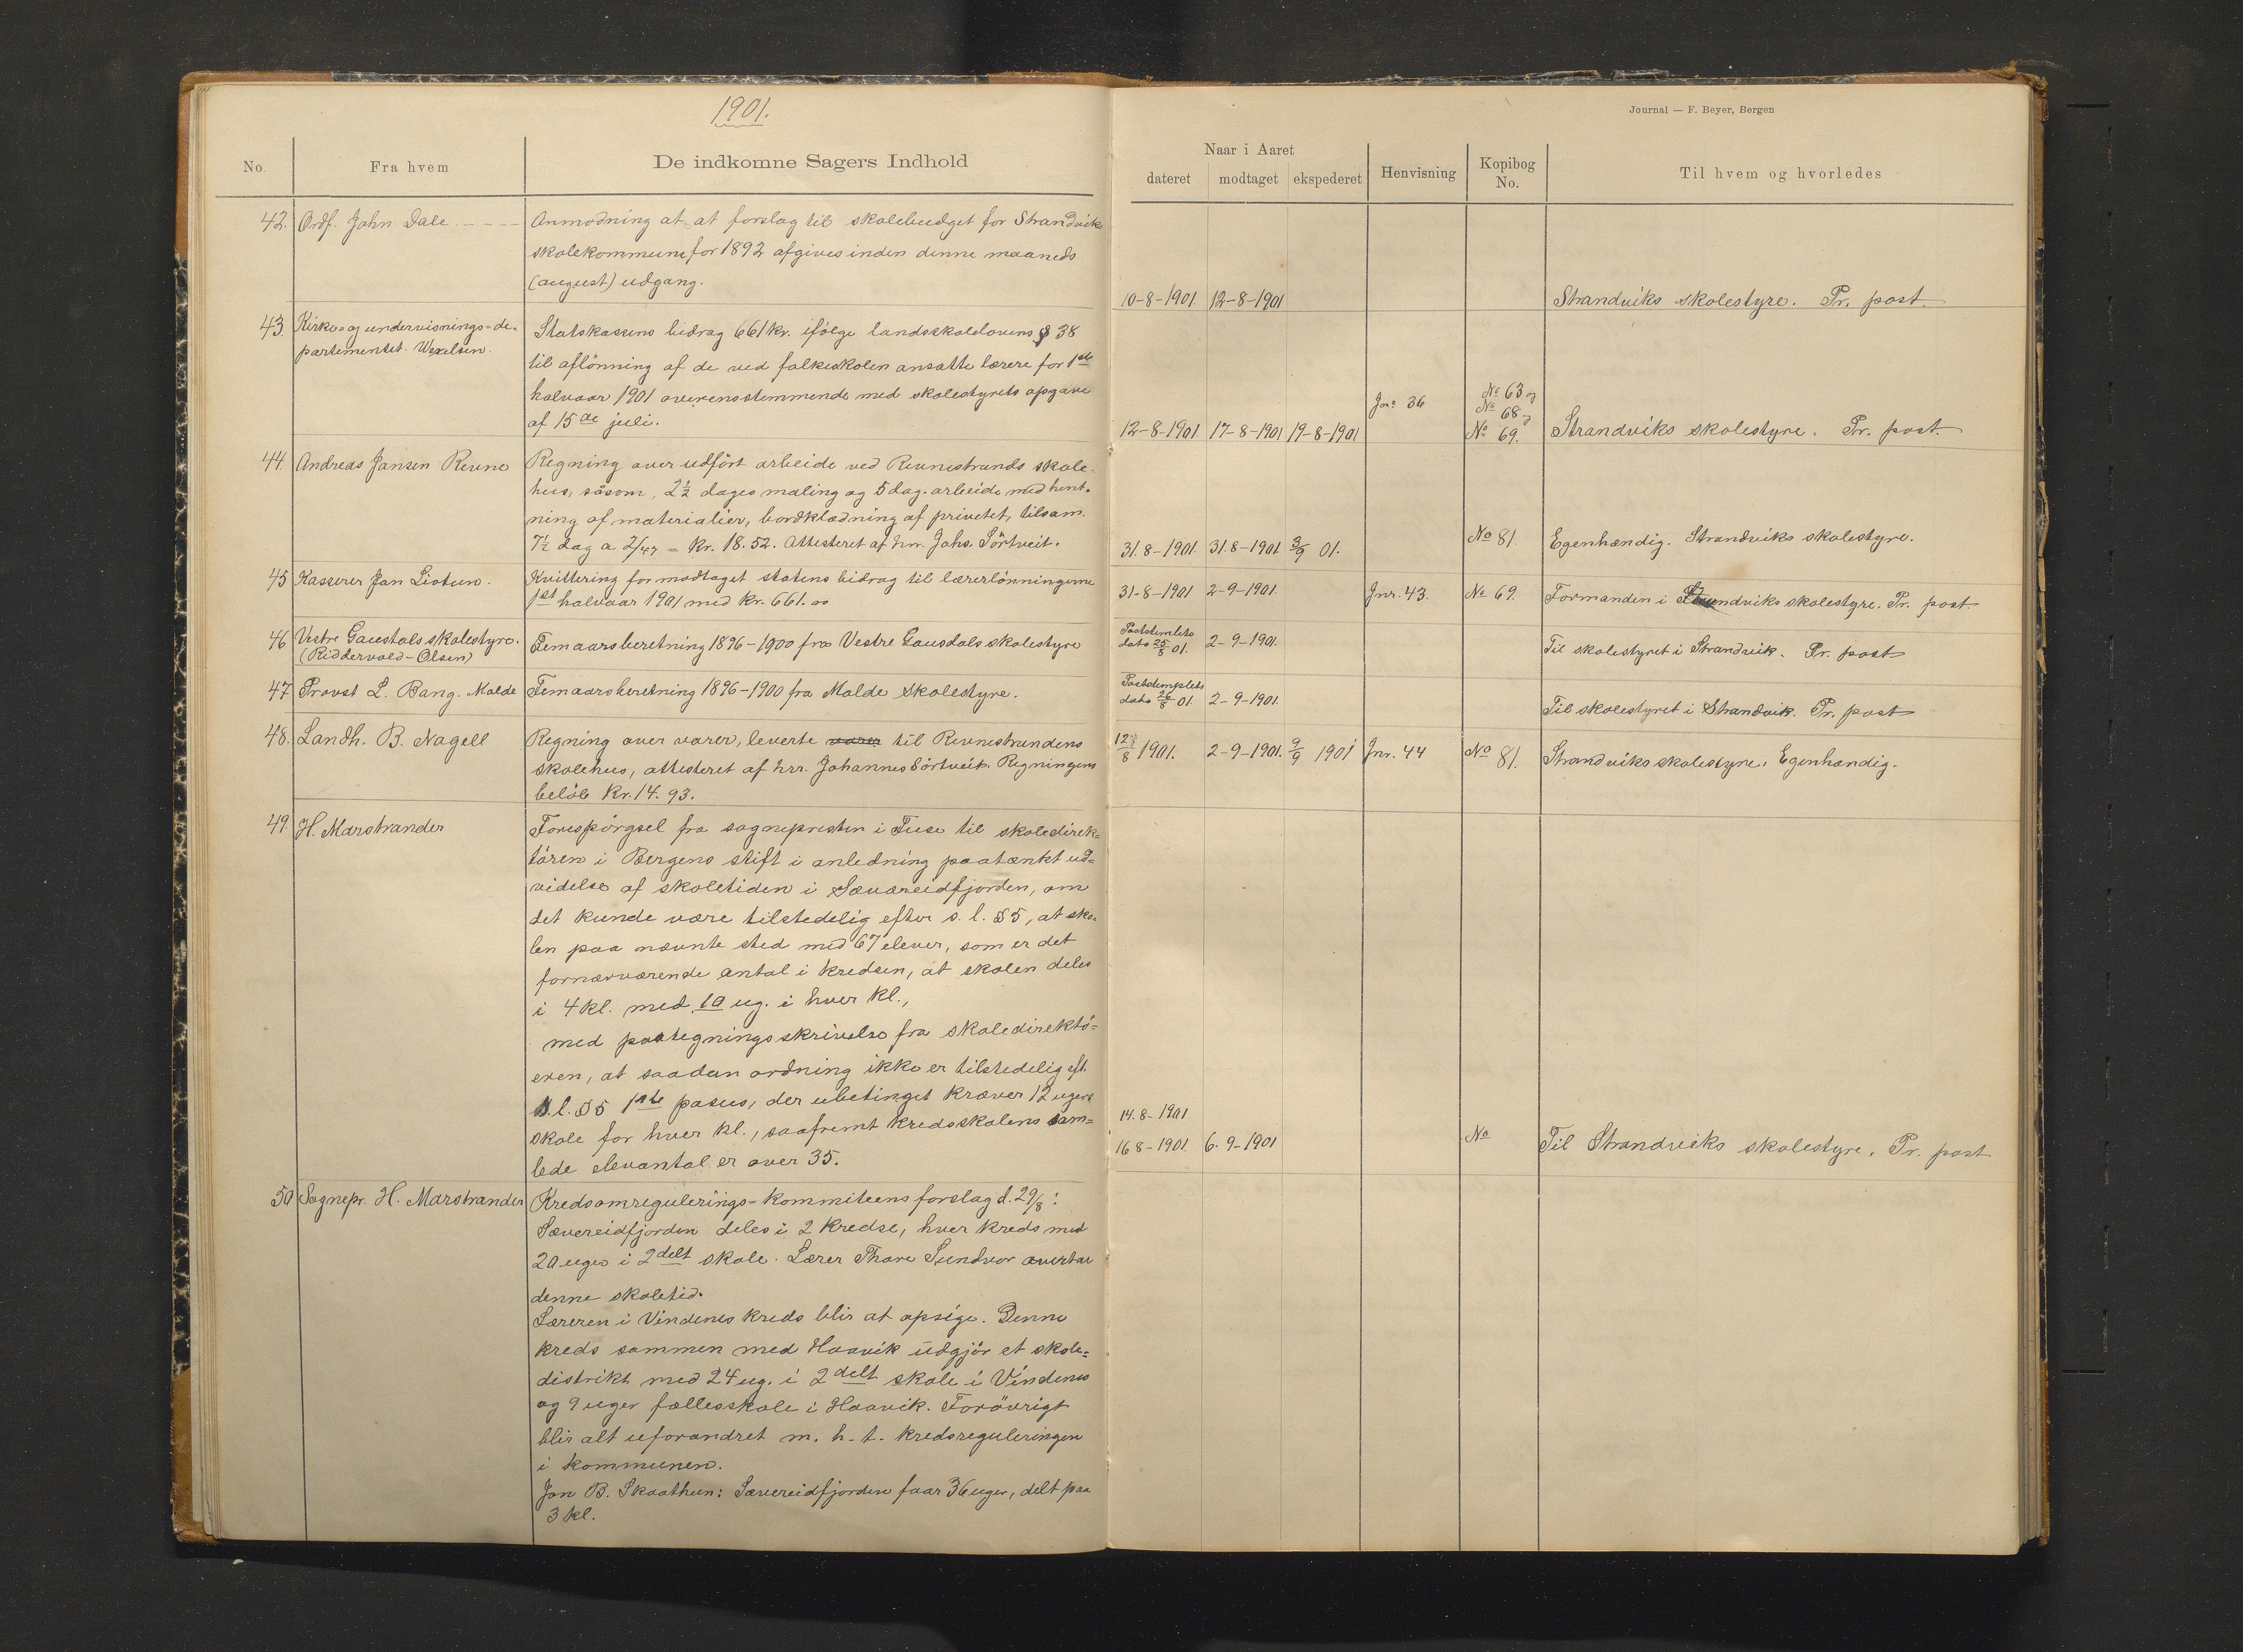 1901.
Journal — F. Beyer, Bergen
No.
Fra hvem
De indkomne Sagers Indhold
Naar i Aaret
dateret
modtaget
ekspederet
Henvisning
Kopibog
No.
Til hvem og hvorledes
42. Ordf. John Dale
Anmodning at at forslag til skolebudget for Strandviks
skolekommune for 1892 afgives inden denne maaneds
(august) udgang.
10-8-1901 12-8-1901
Strandviks skolestyre. Pr. post.
43. Kirke- og undervisnings-de-
partementet. Wexelsen.
Statskassens bidrag 661 kr. ifølge landsskolelovens § 38
til aflönning af de ved folkeskolen ansatte lærere for 1ste
halvaar 1901 overensstemmende med skolestyrets opgave
af 15de juli.
12-8-1901 17-8-1901 19-8-1901
Jnr. 36
No 63 og
No 68 og
No 69.
Strandviks skolestyre. Pr. post.
44. Andreas Jansen Revne
Regning over udført arbeide ved Revnestrands skole-
hus, såsom, 2½ dages maling og 5 dag. arbeide med hent-
ning af materialier, bordklædning af privetet, tilsam.
7½ dag a 2/47 = Kr. 18.52. Attesteret af hrr. Johs. Sörtveit.
31.8-1901. 31.8-1901 3/9 01.
No 81
Egenhændig. Strandviks skolestyre.
45 Kasserer Jon Liotun.
Kvittering for modtaget statens bidrag til lærerlönningerne
1st halvaar 1901 med kr. 661.00
31-8-1901 2-9-1901.
Jnr. 43.
No 69.
Formanden i Strandviks skolestyre. Pr. post.
46 Vestre Gausdals skolestyre.
(Riddervold-Olsen)
Femaarsberetning 1896-1900 fra Vestre Gausdals skolestyre
Poststemplets
dato 25/8 01. 2-9-1901.
Til skolestyret i Strandvik. Pr. post
47 Provst L. Bang. Molde
Femaarsberetning 1896-1900 fra Molde skolestyre.
Poststemplets
dato 26/8 01. 2-9-1901.
Til skolestyret i Strandvik. Pr. post
48. Landh. B. Nagell
Regning over varer, leverte varer til Revnestrandens
skolehus, attesteret af hrr. Johannes Sörtveit. Regningens
belöb Kr. 14.93.
12/8 1901. 2-9-1901. 9/9 1901
Jnr. 44
No 81.
Strandviks skolestyre. Egenhændig.
49. H. Marstrander
Forespörgsel fra sognepresten i Fuse til skoledirek-
tören i Bergens stift i anledning paatænkt ud-
videlse af skoletiden i Sævareidfjorden, om
det kunde være tilstedelig efter s. l. § 5, at sko-
len paa nævnte sted med 67 elever, som er det
fornærværende antal i kredsen, at skolen deles
i 4 kl. med 10 ug. i hver kl.,
med paategningsskrivelse fra skoledirektö-
eren, at saadan ordning ikke er tilstedelig eft.
S. l. § 5 1ste pasus, der ubetinget kræver 12 ugers
skole for hver kl., saafremt kredsskolens sam-
lede elevantal er over 35.
14.8-1901
16 8-1901. 6.9-1901
No
Til Strandviks skolestyre. Pr. post
50 Sognepr. H. Marstrander
Kredsomregulerings-kommiteens forslag d. 29/8:
Sævereidfjorden deles i 2 kredse, hver kreds med
20 uger i 2delt skole. Lærer Thore Sundvor overtar
denne skoletid.
Læreren i Vindenes kreds blir at opsige. Denne
kreds sammen med Haavik udgjör et skole-
distrikt med 24 ug. i 2delt skole i Vindenes
og 9 uger fællesskole i Haavik. Foröurigt
blir alt uforandret m. h. t. kredsreguleringen
i kommunen.
Jon B. Skaathun: Sævereidfjorden faar 36 uger, delt paa
3 kl.